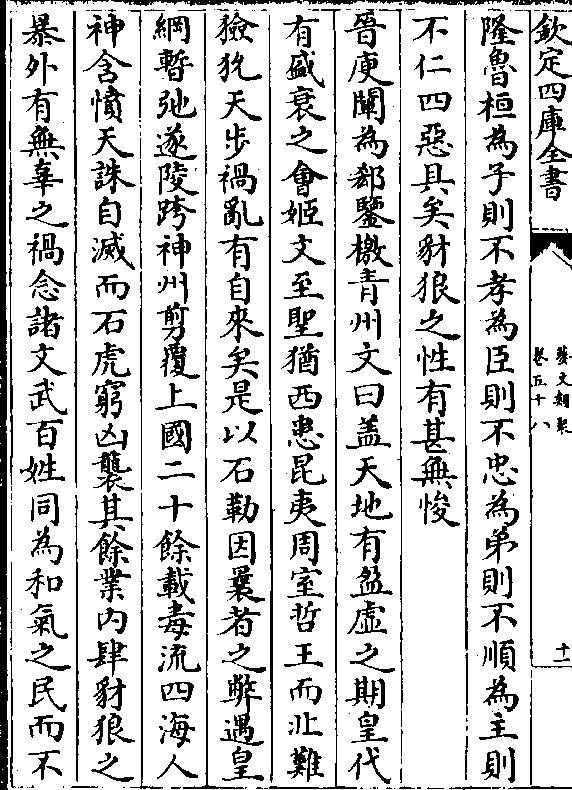 欽定四庫全書
藝文類聚
卷五十八
十一
隆魯桓為子則不孝為臣則不忠為弟則不順為主則
不仁四惡具矣豺狼之性有甚無悛
晉庾闡為郗鑒檄青州文曰盖天地有盈虛之期皇代
有盛衰之會姬文至聖猶西患昆夷周室哲王而北難
獫狁天步禍亂有自來矣是以石勒因曩者之弊遇皇
綱暫弛遂陵跨神州剪覆上國二十餘載毒流四海人
神含憤天誅自滅而石虎窮凶襲其餘業内肆豺狼之
暴外有無辜之禍念諸文武百姓同為和氣之民而不